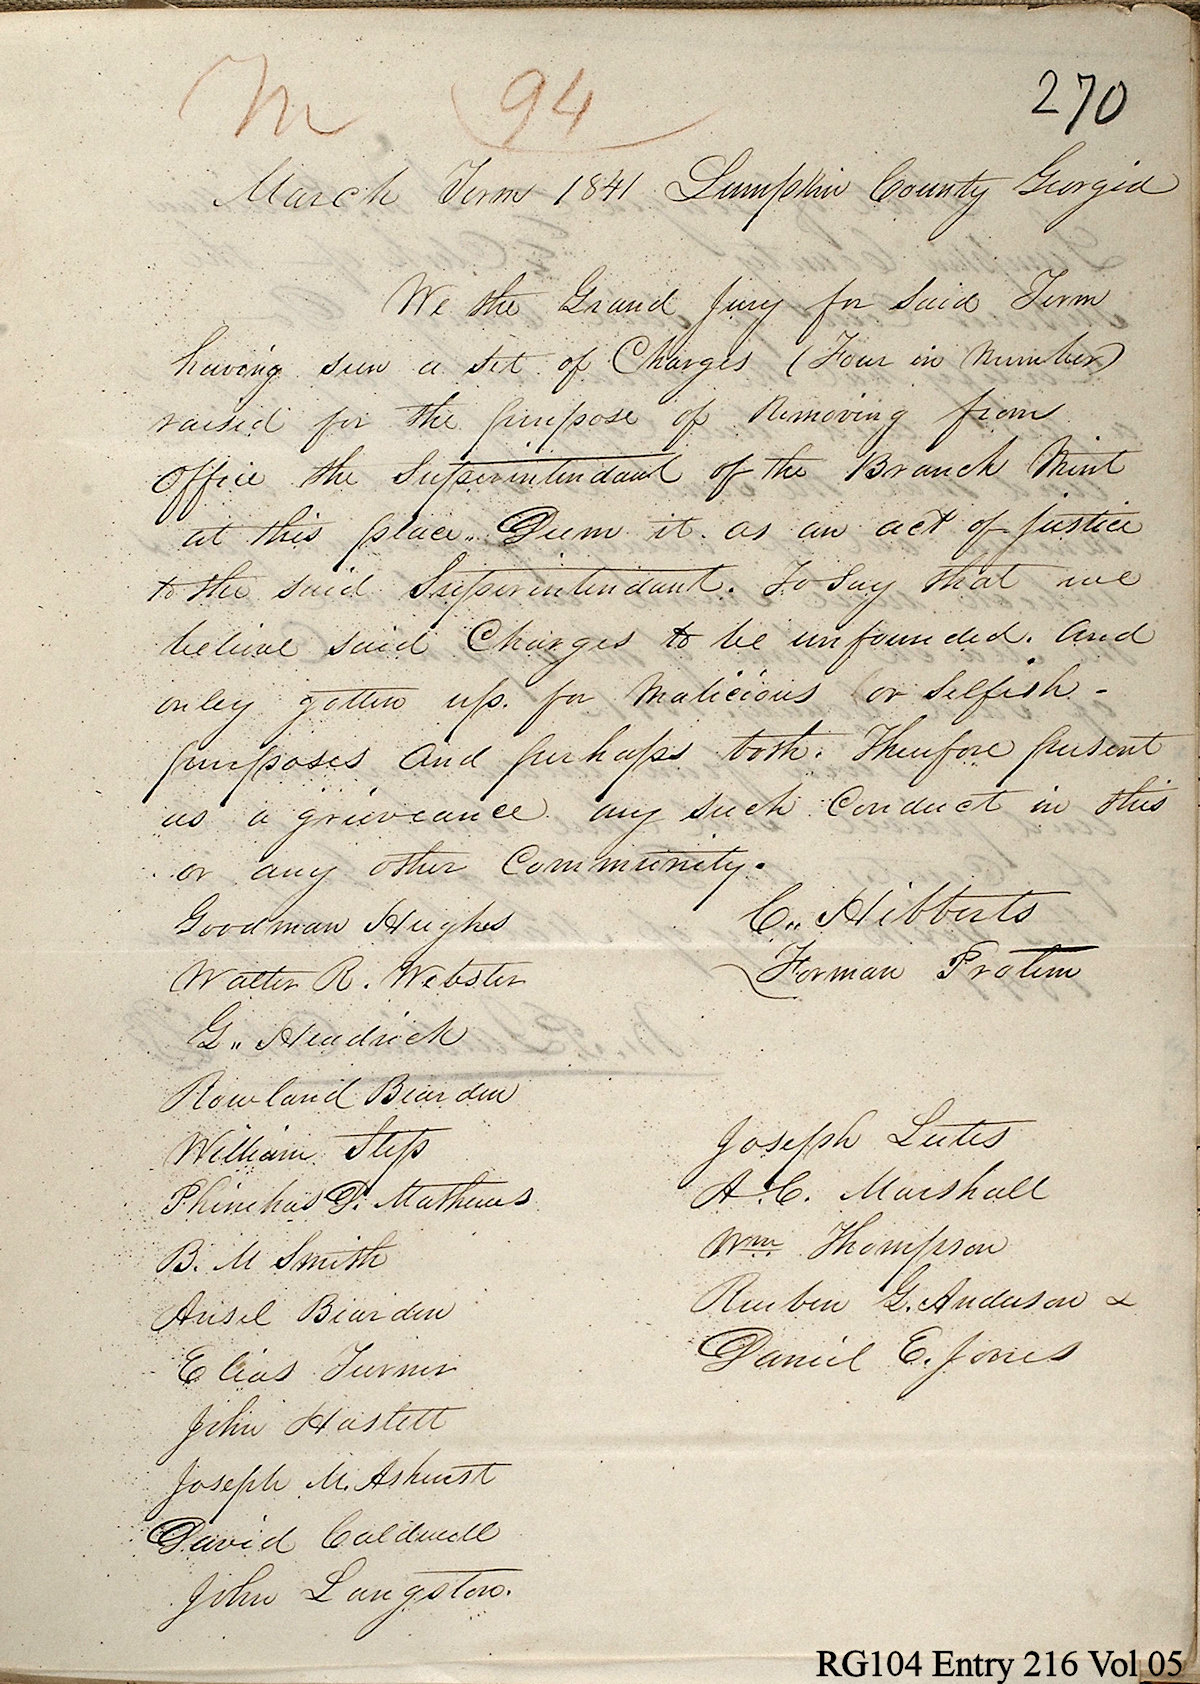 M 94 270
March Term 1841 Lumpkin County Georgia
We the Grand Jury for Said Term
having seen a Set of Charges (Four in Number)
raised for the purpose of Removing from
Office the Superintendant of the Branch Mint
at this place,, Deem it as an act of justice
to the said Superintendant. To Say that we
believe said Charges to be unfounded. And
onley gotten up. for Malicious or Selfish -
purposes And perhaps both. Therefore present
as a grieveance any such Conduct in this
or any other Community.
Goodman Hughes
C,, Hibberts
Walter R. Webster
Forman Protim
G,, Headrick
Rowland Bearden
William Step
Phinehas D. Mathews
B. M Smith
Ansel Bearden
Elias Turner
John Haslett
Joseph M. Ashurst
David Caldwell
John Langston.
Joseph Lutes
A. C. Marshall
Wm Thompson
Reuben G. Anderson &
Daniel E. Jones
RG104 Entry 216 Vol 05